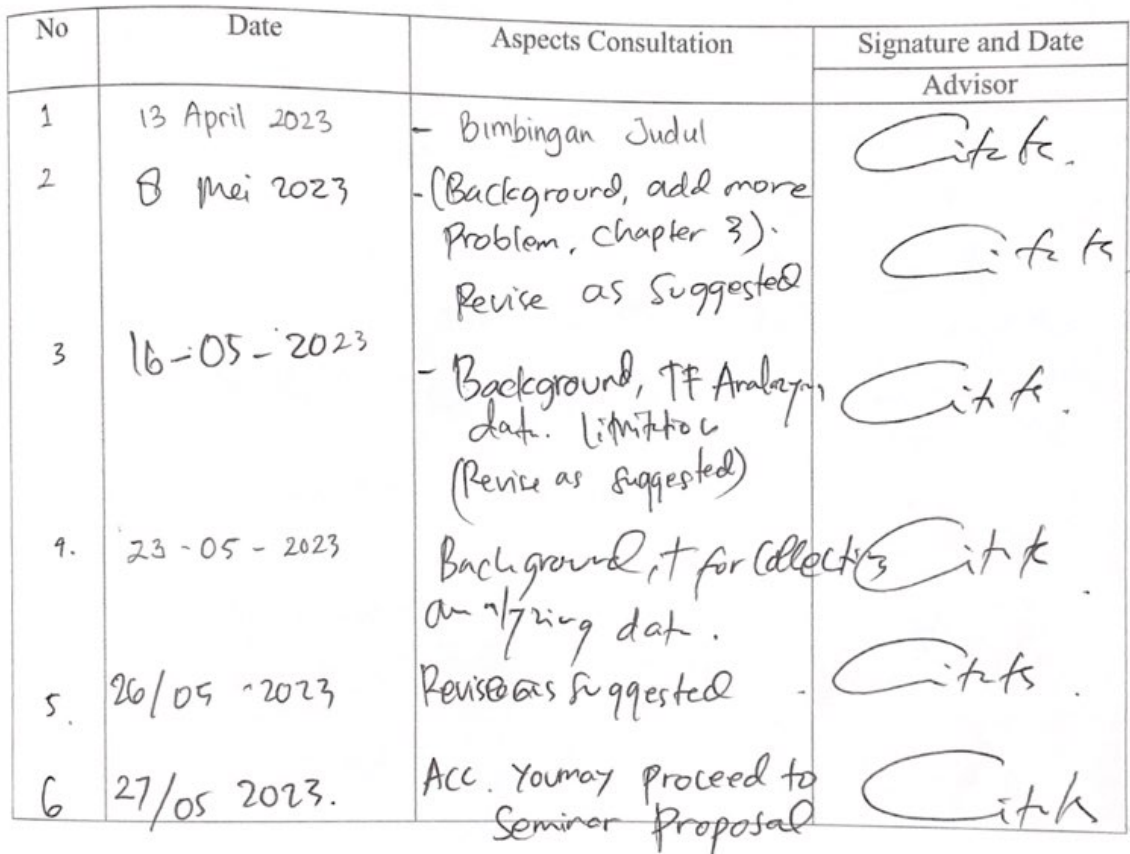 No Date Aspects Consultation Signature and Date
Advisor
1 13 April 2023 - Bimbingan Judul
2 8 Mei 2023 - (Background, add more
Problem, Chapter 3).
Revise as Suggested
3 16-05-2023
- Background, TF
data.
(Revise as suggested)
4. 23-05-2023 Background, T for Collecting
analyzing data.
5. 26/05-2023 Revise as Suggested
6 27/05 2023. Acc. You may proceed to
Seminar Proposal